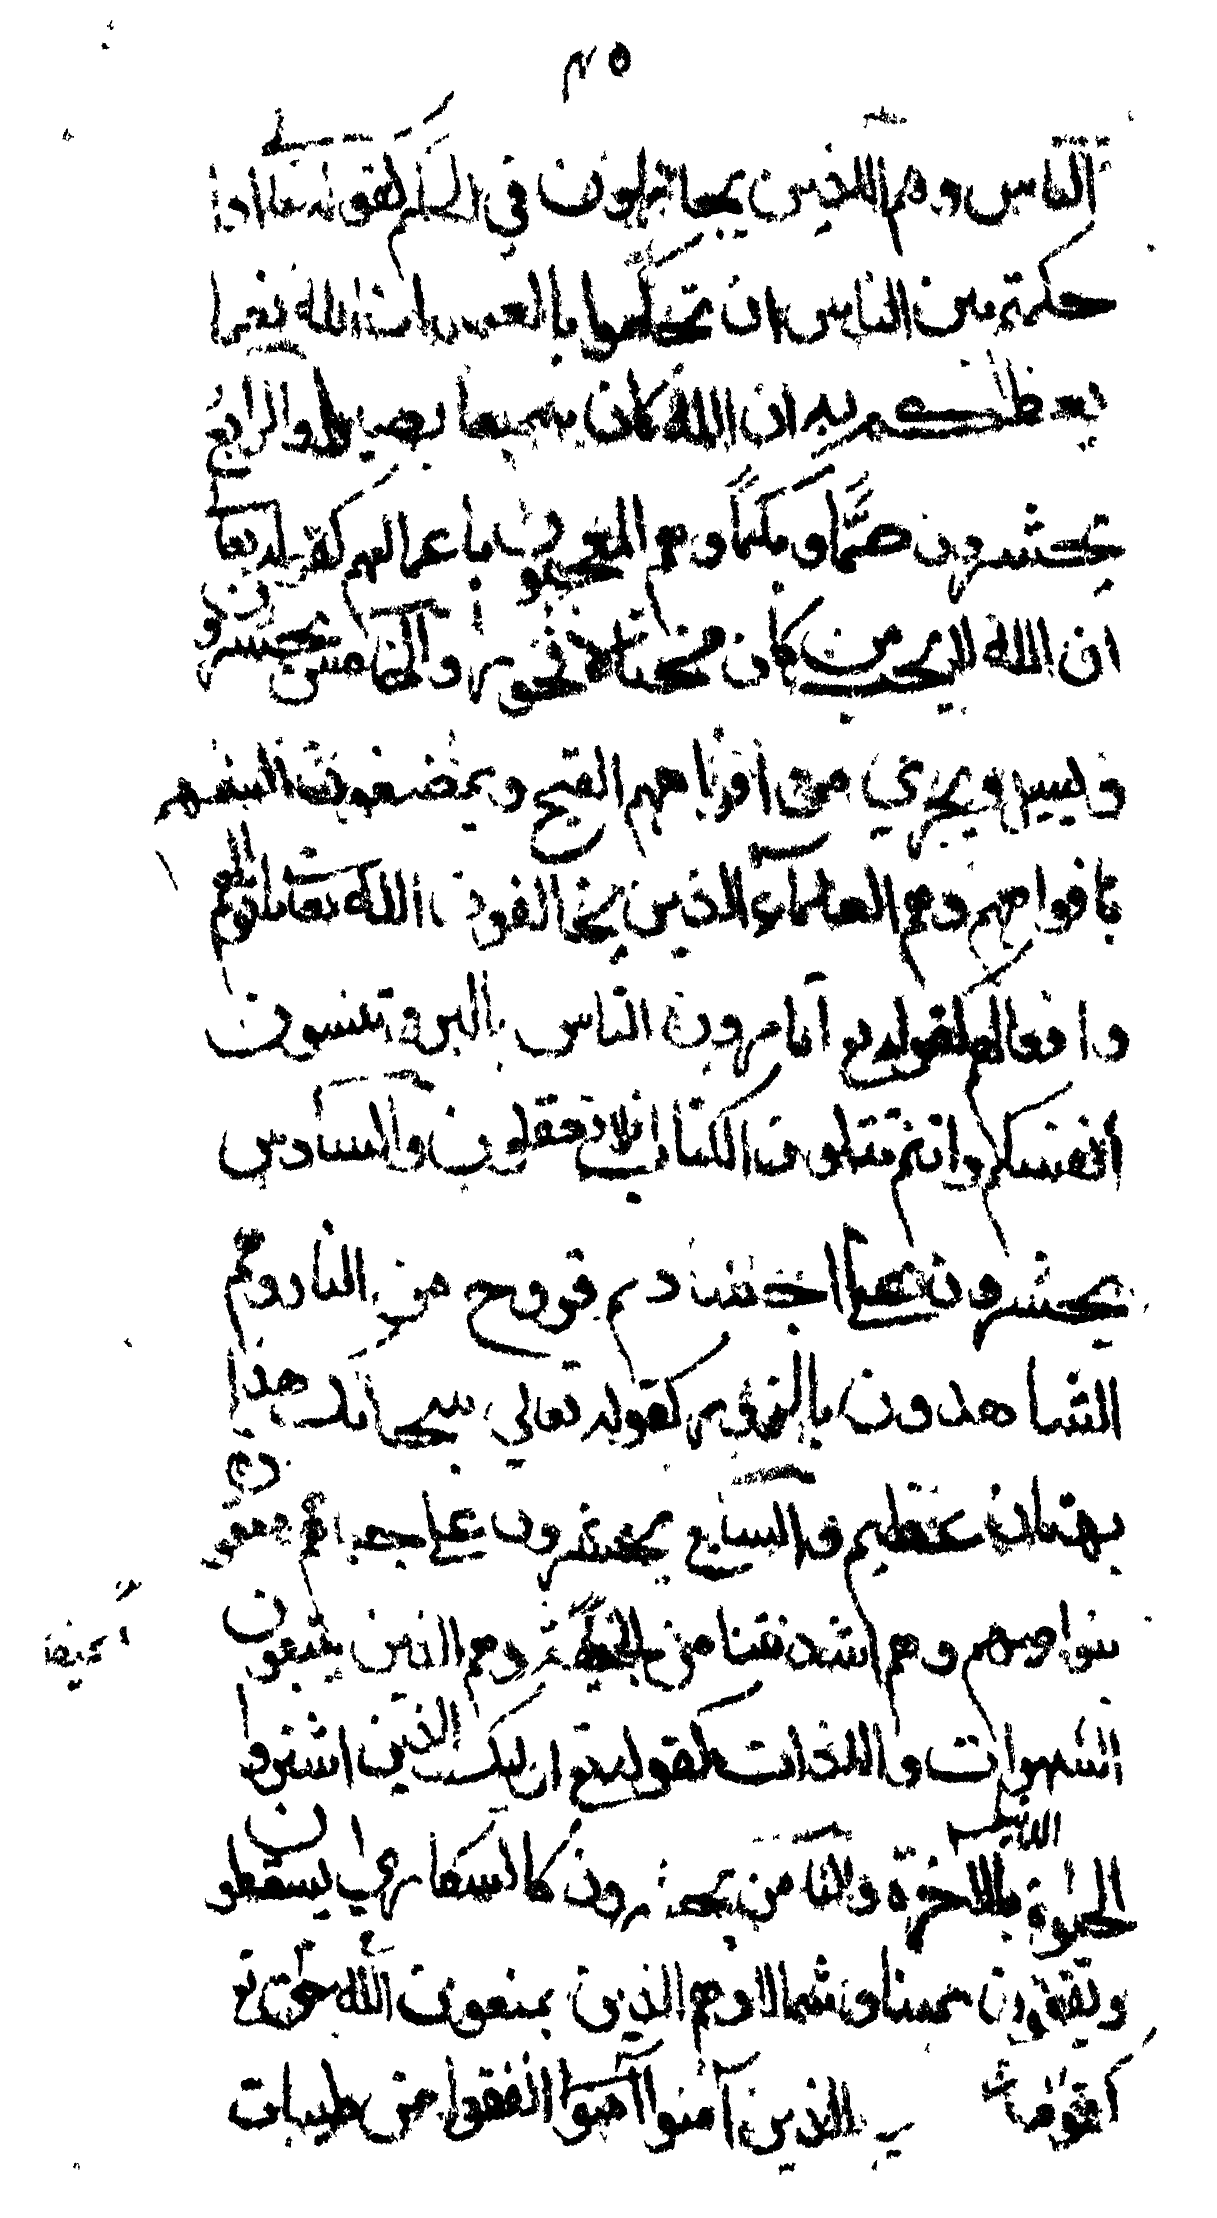 ٤٥
الناس وهم الذين يجازفون في الحكم لقوله تعالى واذا
حكمتم بين الناس ان تحكموا بالعدل ان الله نعما
يعظكم به ان الله كان سميعا بصيرا والرابع
يحشرون صما وبكما وهم المعجبون باعمالهم كقوله تعالى
ان الله لا يحب من كان مختالا فخورا والخامس يحشرون
ويسيل ويجري من افواههم القيح ويمضغون السنتهم
بافواههم وهم العلماء الذين يخالفون الله تعالى قولهم
وافعالهم لقوله تع أتامرون الناس بالبر وتنسون
أنفسكم وانتم تتلون الكتاب افلا تعقلون والسادس
يحشرون على اجسادهم قروح من النار وهم
الشاهدون بالزور كقوله تعالى سبحانك هذا
بهتان عظيم والسابع يحشرون على جباههم معقودة
بنواصيهم وهم اشد نتنا من الجيفة وهم الذين يتبعون
الشهوات واللذات لقوله تع اوليك الذين اشتروا
الحيوة الدنيا بالآخرة والثامن يحشرون كالسكارى يسقطون
ويقعون يمينا وشمالا وهم الذين يمنعون الله حق تع
الذين آمنوا انفقوا من طيبات